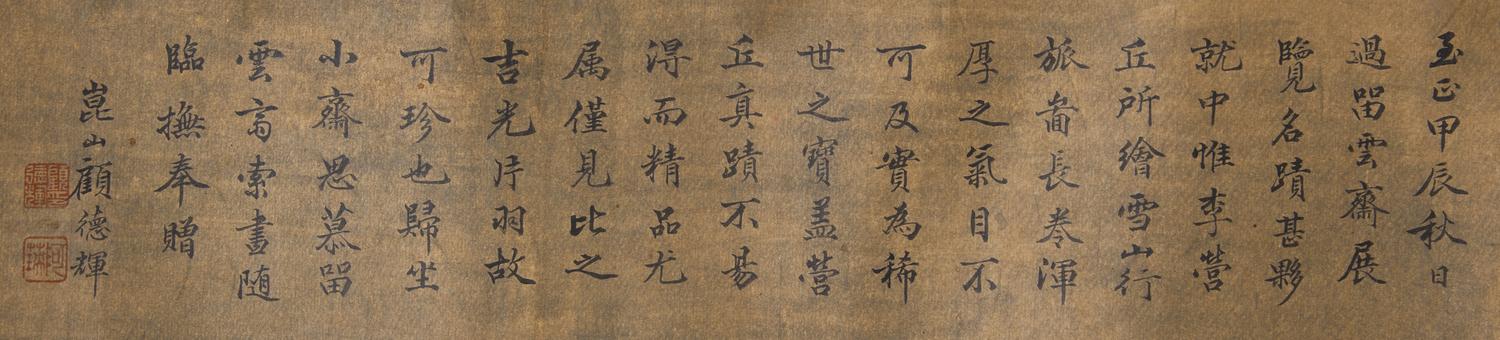 至正甲辰秋日
過畱雲齋展
覽名蹟甚夥
就中惟李營
丘所繪雪山行
旅啚長卷渾
厚之氣目不
可及實為稀
世之寶盖營
丘真蹟不易
淂而精品尤
属僅見比之
吉光片羽故
可珍也歸坐
小齋思慕畱
雲高索畫随
臨撫奉贈
崑山顧德輝